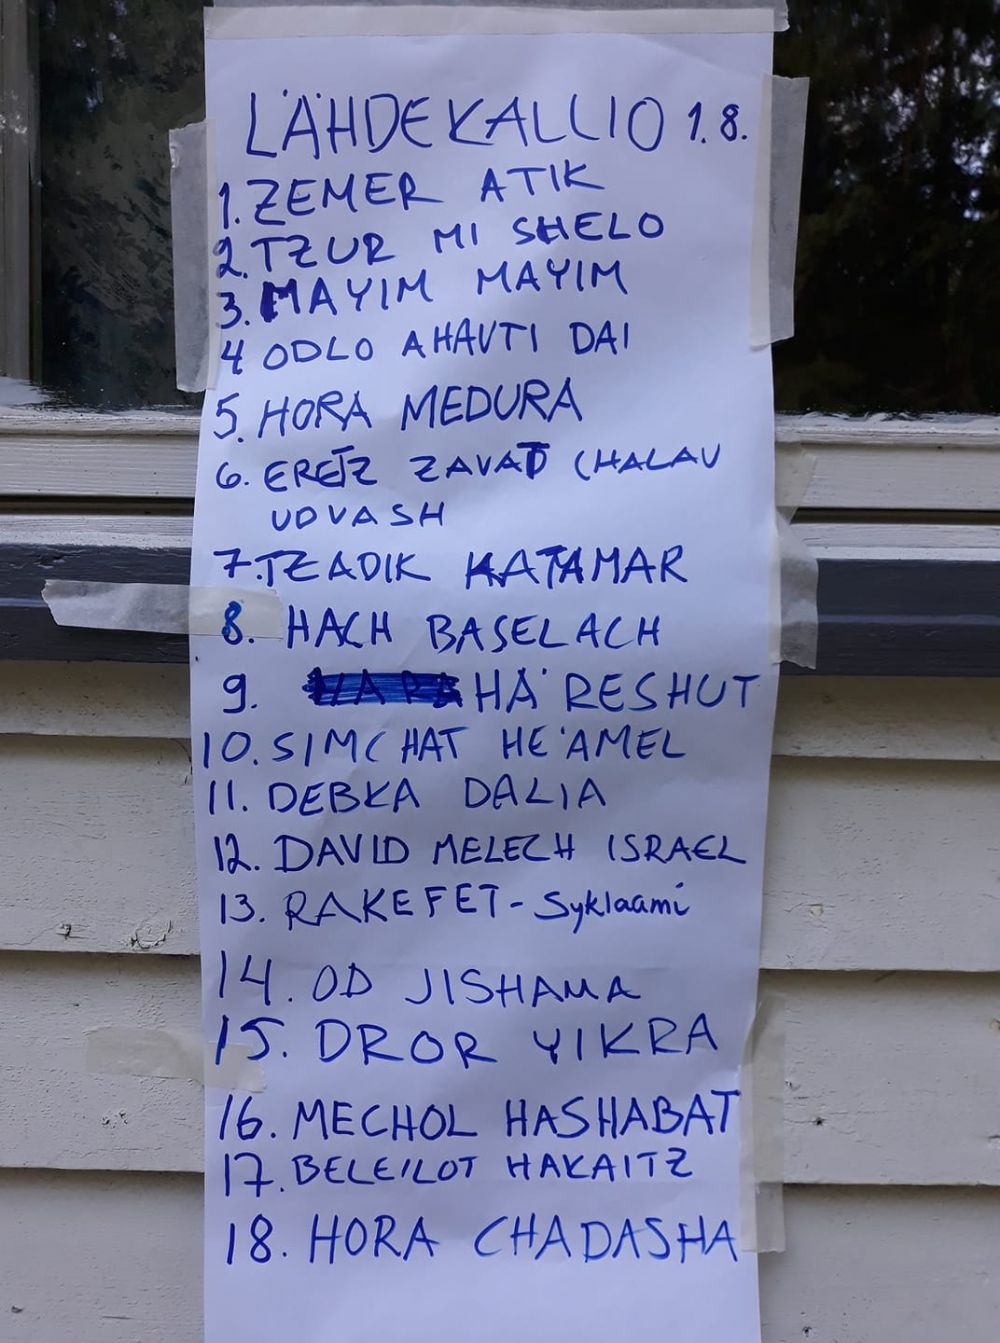 LÄHDEKALLIO 1.8.
1. ZEMER ATIK
2. TZUR MI SHELO
3. MAYIM MAYIM
4 ODLO AHAVTI DAI
5. HORA MEDURA
6. ERETZ ZAVAT CHALAV
UDVASH
7. TZADIK KATAMAR
8. HACH BASELACH
9. HA'RESHUT
10. SIMCHAT HE'AMEL
11. DEBKA DALIA
12. DAVID MELECH ISRAEL
13. RAKEFET - Syklaami
14. OD JISHAMA
15. DROR YIKRA
16. MECHOL HASHABAT
17. BELEILOT HAKAITZ
18. HORA CHADASHA